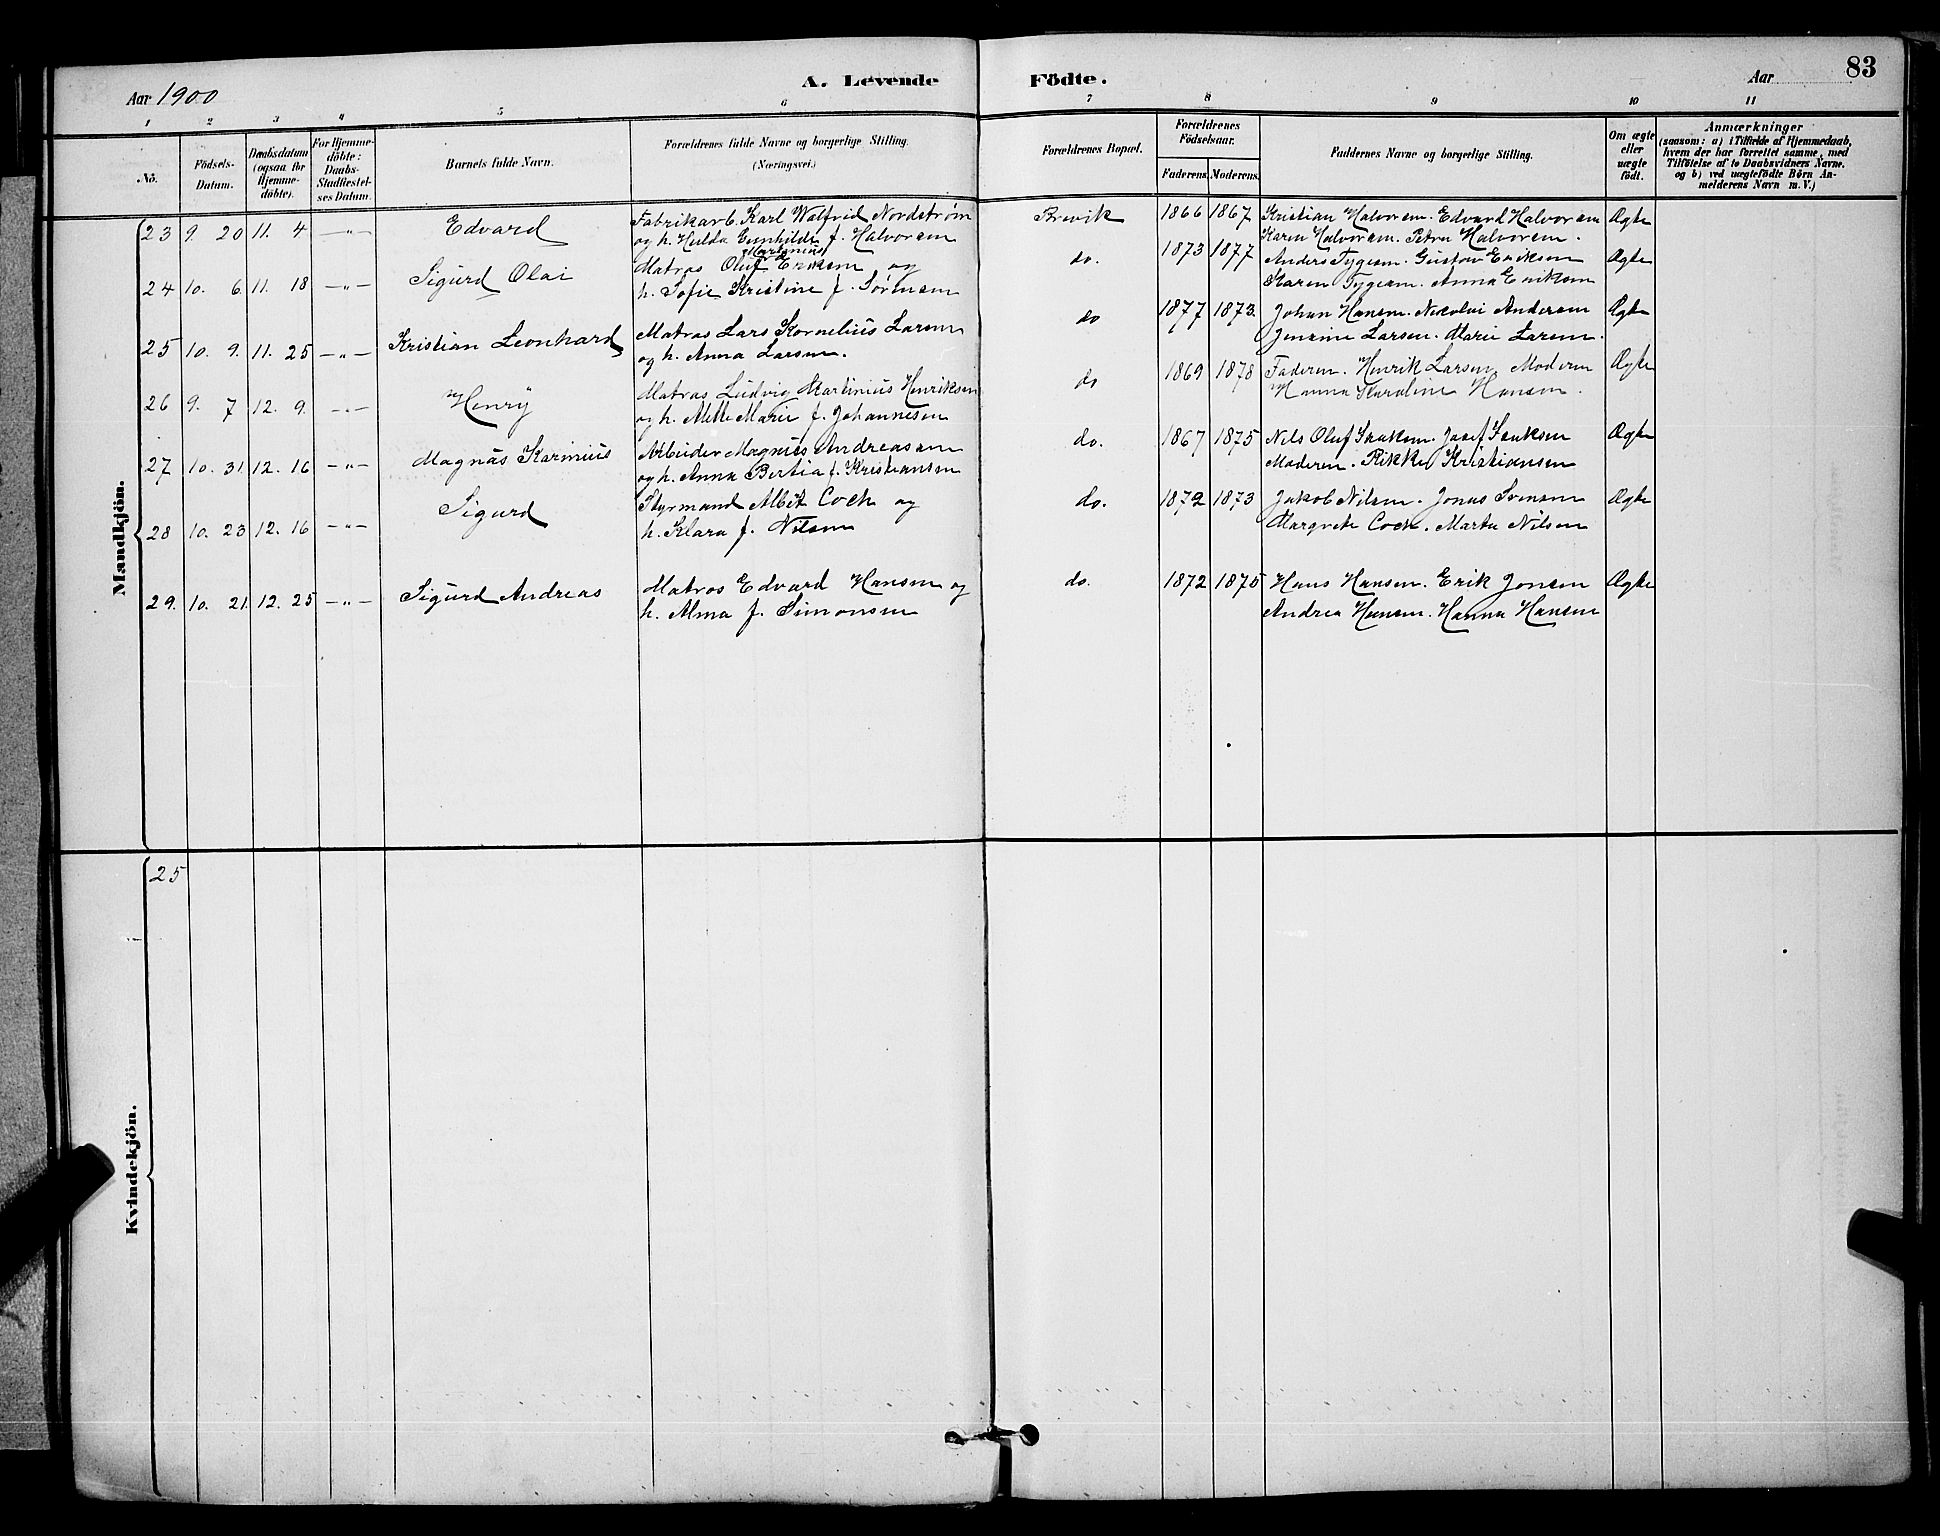 Aar 1900
A. Levende Födte.
Aar
83
1 2 3 4 5 6 7 8 9 10 11
No.
Födsels-Datum.
Daabsdatum (ogsaa for Hjemmedöbte).
For Hjemmedöbte: Daabs-Stadfiestelses Datum.
Barnets fulde Navn.
Forældrenes fulde Navne og borgerlige Stilling. (Næringsvei.)
Forældrenes Bopæl.
Forældrenes Födselsaar.
Faderens. Moderens.
Faddernes Navne og borgerlige Stilling.
Om ægte eller uægte födt.
Anmærkninger
(saasom: a) i Tilfælde af Hjemmedaab,
hvem der har forrettet samme, med
Tilföielse af to Daabsvidners Navne.
og b) ved uægtefödte Börn An-
melderens Navn m. V.)
Mandkjön.
23 9. 20 11. 4 —„— Edvard Fabrikarb. Karl Walfrid Nordstrøm Brevik 1866 1867 Kristian Halvorsen. Edvard Halvorsen Ægte
og h. Hulda Gunhilde f. Halvorsen Karen Halvorsen. Petra Halvorsen.
24 10. 6. 11. 18 —„— Sigurd Olai Matros Oluf Martinius Eriksen og do. 1873 1877 Anders Tygesen. Gustav Eriksen Ægte
h. Sofie Kristine f. Sørensen Karen Tygesen. Anna Eriksen
25 10. 9. 11. 25 —„— Kristian Leonhard Matros Lars Kornelius Larsen do 1877 1873. Johan Hansen. Nicolai Andersen Ægte
og h. Anna Larsen. Jensine Larsen. Marie Larsen.
26 9. 7 12. 9. —„— Henry Matros Ludvig Martinius Henriksen do 1869 1878 Faderen. Henrik Larsen, Moderen Ægte
og h. Mette Marie f. Johannesen Hanna Karoline Hansen.
27 10. 31. 12. 16 —„— Magnus Karinius Arbeider Magnus Andreassen do. 1867 1875 Nils Oluf Isaksen. Josef Isaksen Ægte
og h. Anna Bertia f. Kristiansen Moderen. Rikke Kristiansen
28 10. 23 12. 16 —„— Sigurd Styrmand Albert Coch og do. 1872 1873 Jakob Nilsen. Jonas Svensen Ægte
h. Klara f. Nilsen Margrete Coch. Marta Nilsen
29. 10. 21. 12. 25 —„— Sigurd Andreas Matros Edvard Hansen og do. 1872 1875 Hans Hansen. Erik Jonsen Ægte
h. Alma f. Simonsen Andrea Hansen. Hanna Hansen
Kvindekjön.
25